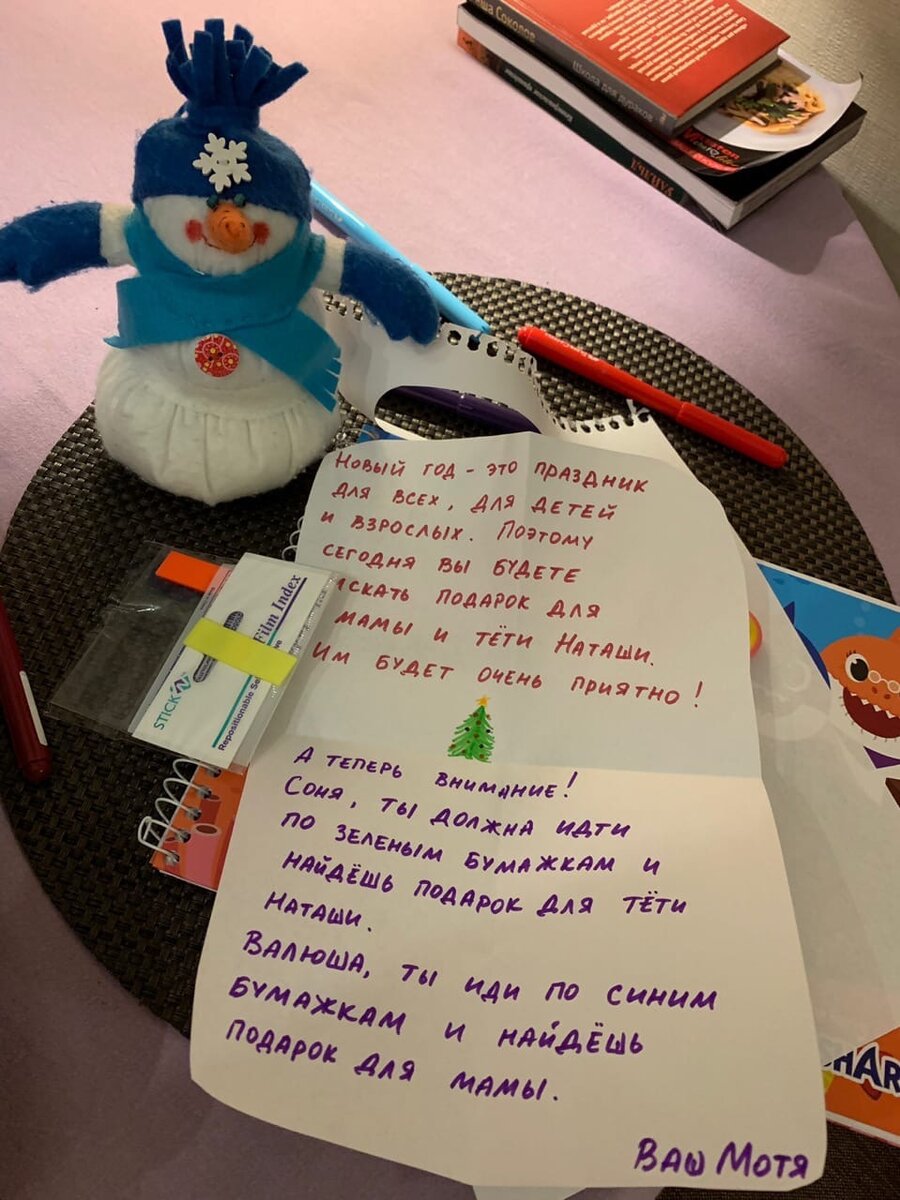 еша Соколов
Школа для дураков
Новый год - это праздник
для всех, для детей
и взрослых. Поэтому
сегодня вы будете
искать подарок для
мамы и тёти Наташи.
Им будет очень приятно!
А теперь внимание!
Соня, ты должна идти
по зеленым бумажкам и
найдёшь подарок для тёти
Наташи.
Валюша, ты иди по синим
бумажкам и найдёшь
подарок для мамы.
Ваш Мотя
Film Index
STICK'N
Repositionable Se
HAR